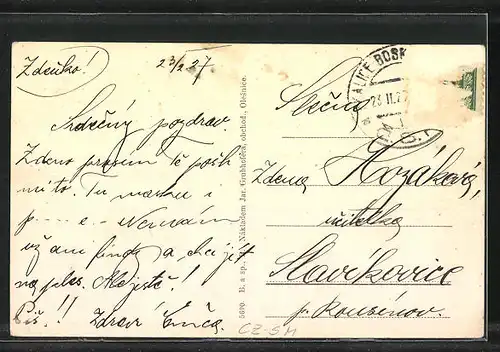 Zdenko!
23/2 27
Srdečný pozdrav.
Zdeno prosím Tě pošli
mi to. Tu masku i
p---- e-- Nemám
už ani a chci jet
na ples. Ale jistě!
Piš!! Zdraví
5690. B. a sp., Nákladem Jar. Grubhoffera, obchod., Olešnice.
23 II. 27
Slečna
Zdena Horáková,
učitelka
Slavíkovice
p. Rousínov.
CZ-SM